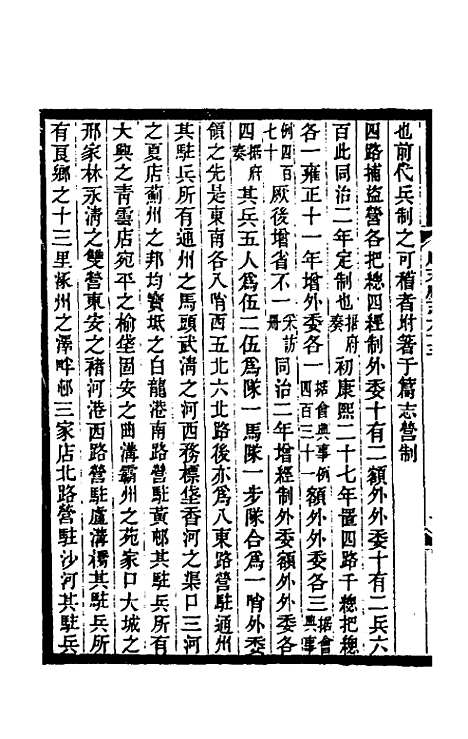 也前代兵制之可稽者附著于篇志營制
四路捕盜營各把總四經制外委十有二額外外委十有二兵六
百此同治二年定制也據府奏初康熙二十七年置四路千總把總
各一雍正十一年增外委各一據會典事例四百三十一額外外委各三據會典事
例四百七十厥後增省不一采訪冊同治二年增經制外委額外外委各
四據府奏其兵五人爲伍二伍爲隊一馬隊一步隊合爲一哨外委
領之先是東南各八哨西五北六北路後亦爲八東路營駐通州
其駐兵所有通州之馬頭武清之河西務標垡香河之渠口三河
之夏店薊州之邦均寶坻之白龍港南路營駐黃邨其駐兵所有
大興之青雲店宛平之榆垡固安之曲溝霸州之苑家口大城之
邢家林永清之雙營東安之褚河港西路營駐盧溝橋其駐兵所
有良鄉之十三里涿州之澤畔邨三家店北路營駐沙河其駐兵